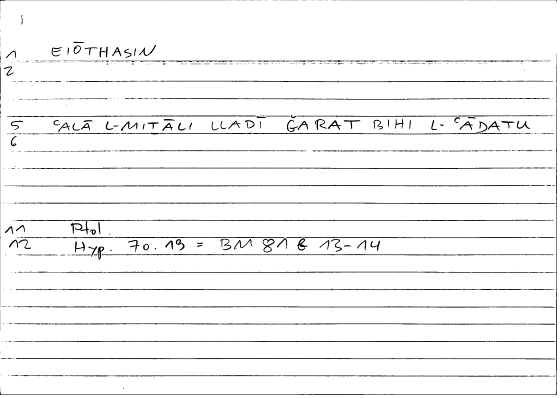 1 EIŌTHASIN
2
5 ʿALĀ L-MITĀLI LLADĪ ǦARAT BIHI L-ʿĀDATU
6
11 Ptol.
12 Hyp. 70.19 = BM 81 13-14